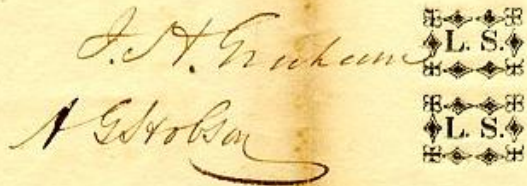 J. H. Graham L. S.
A G Hobson L. S.